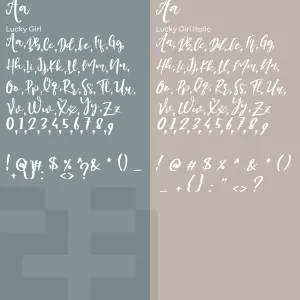 Aa
Lucky Girl
Aa, Bb, Cc, Dd, Ee, Ff, Gg,
Hh, Ii, Jj, Kk, Ll, Mm, Nn,
Oo, Pp, Qq, Rr, Ss, Tt, Uu,
Vv, Ww, Xx, Yy, Zz
0,1,2,3,4,5,6,7,8,9
! @ # $ % ^ & * () _
+ {} : " <> ?
Aa
Lucky Girl Italic
Aa, Bb, Cc, Dd, Ee, Ff, Gg,
Hh, Ii, Jj, Kk, Ll, Mm, Nn,
Oo, Pp, Qq, Rr, Ss, Tt, Uu,
Vv, Ww, Xx, Yy, Zz
0,1,2,3,4,5,6,7,8,9
! @ # $ % ^ & * ()
_ + {} : " <> ?